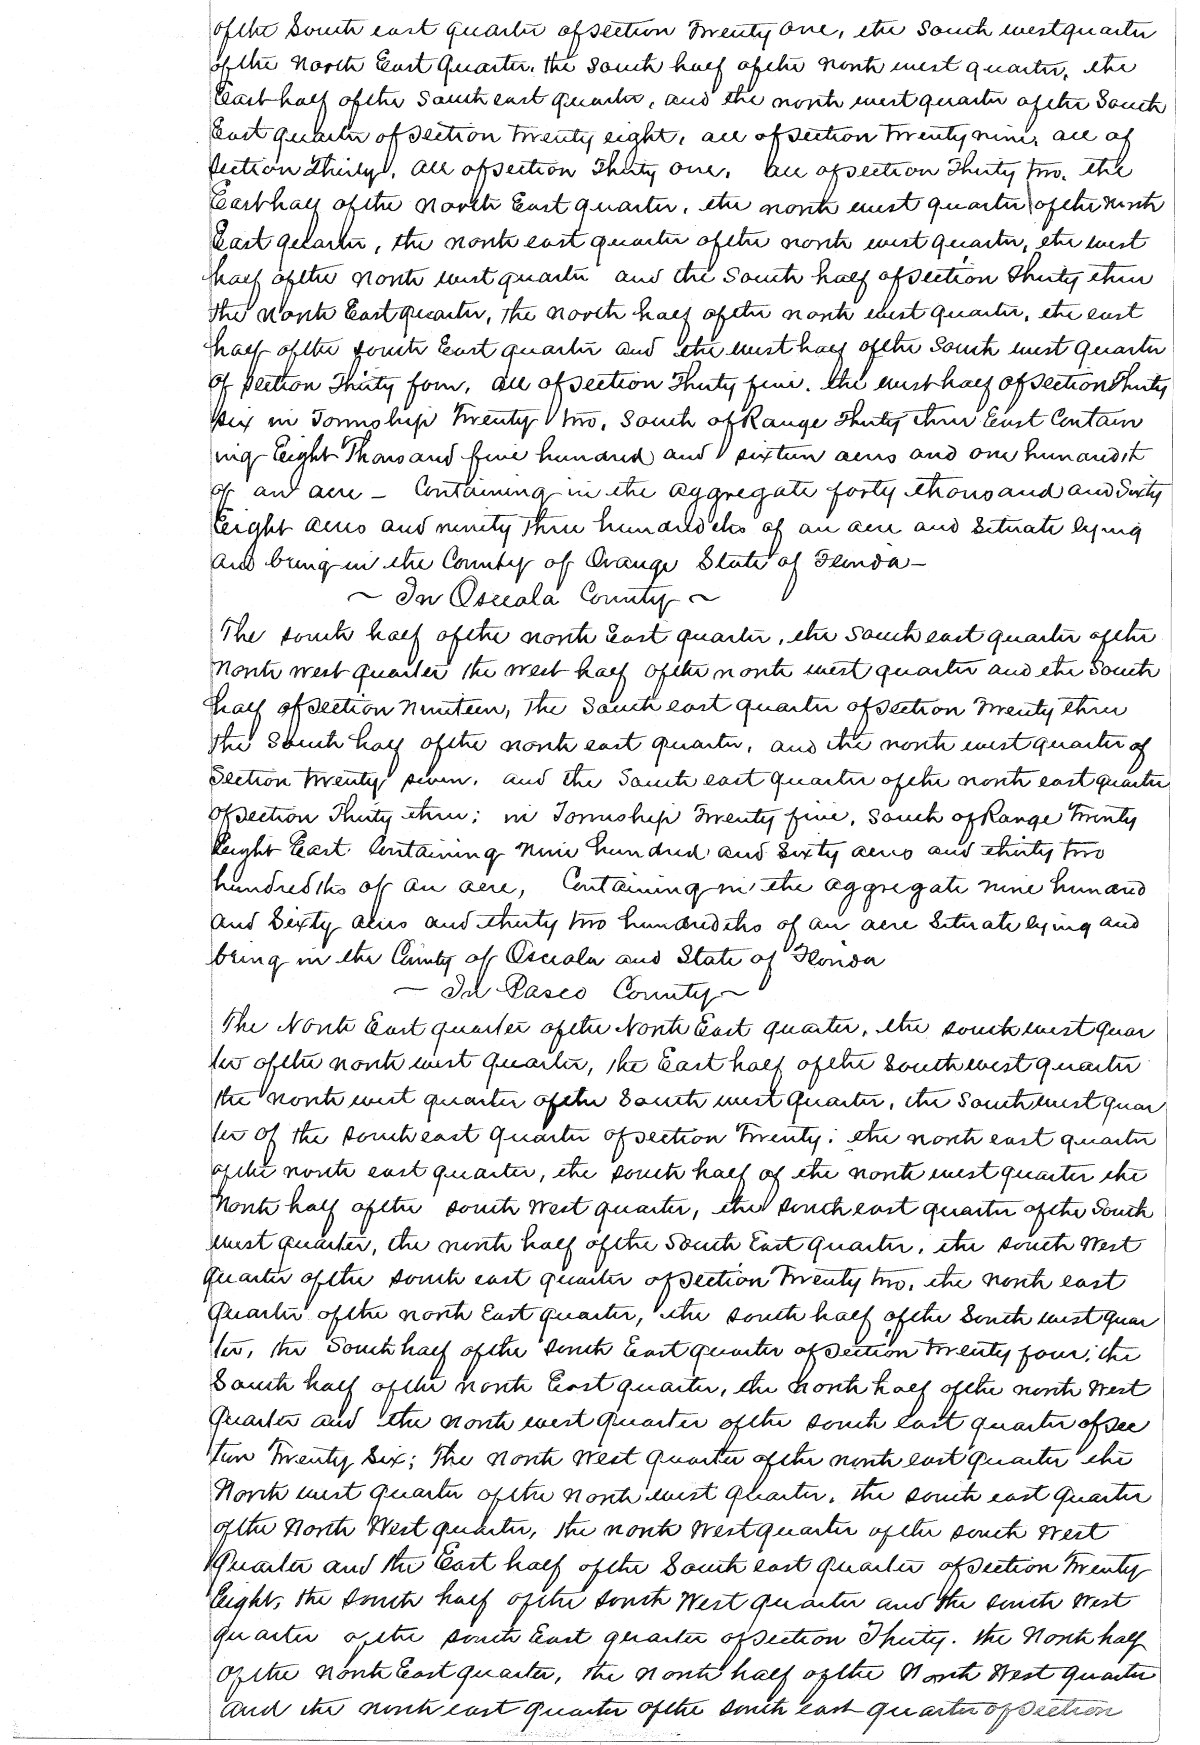 of the South east quarter of section Twenty One, the South west quarter
of the North East Quarter, the South half of the north west quarter, the
East half of the South east quarter, and the north west quarter of the South
East quarter of section Twenty eight, all of section Twenty nine, all of
section Thirty, all of section Thirty One, all of section Thirty two, the
East half of the North East quarter, the north west quarter of the North
East quarter, the north east quarter of the north west quarter, the west
half of the north west quarter and the South half of section Thirty three
the North East quarter, the north half of the north west quarter, the east
half of the South East quarter and the west half of the South west quarter
of section Thirty four, all of section Thirty five, the west half of section Thirty
six in Township Twenty two, South of Range Thirty three East Contain
ing Eight Thousand five hundred and sixteen acres and one hundredth
of an acre - Containing in the aggregate forty thousand and Sixty
Eight acres and ninety three hundredths of an acre and Situate lying
and being in the County of Orange State of Florida -
~ In Osceola County ~
The south half of the north East quarter, the South east quarter of the
North west quarter the west half of the north west quarter and the South
half of section Nineteen, The South east quarter of section Twenty three
the South half of the north east quarter, and the north west quarter of
Section Twenty seven, and the South east quarter of the north east quarter
of section Thirty three; in Township Twenty five, South of Range Twenty
Eight East Containing Nine hundred and Sixty acres and thirty two
hundredths of an acre, Containing in the aggregate nine hundred
and Sixty acres and thirty two hundredths of an acre Situate lying and
being in the County of Osceola and State of Florida
- In Pasco County ~
The North East quarter of the North East quarter, the south west quar
ter of the north west quarter, the East half of the South west quarter
the north west quarter of the South west Quarter, the South west quar
ter of the south east quarter of section Twenty; the north east quarter
of the north east quarter, the south half of the north west quarter the
North half of the south West quarter, the south east quarter of the South
west quarter, the north half of the South East Quarter, the south West
quarter of the south east quarter of section Twenty two, the north east
Quarter of the north East quarter, the south half of the South west quar
ter, the South half of the South East quarter of section Twenty four; the
South half of the north East quarter, the north half of the north West
Quarter and the north west quarter of the south east quarter of sec
tion Twenty Six; The North West quarter of the north east quarter the
North west quarter of the north west quarter, the south east quarter
of the North West quarter, the north West quarter of the south West
Quarter and the East half of the South east quarter of section Twenty
Eight, the south half of the south West quarter and the south West
quarter of the south East quarter of section Thirty. the North half
of the north East quarter, the north half of the North West quarter
and the north east quarter of the south east quarter of section